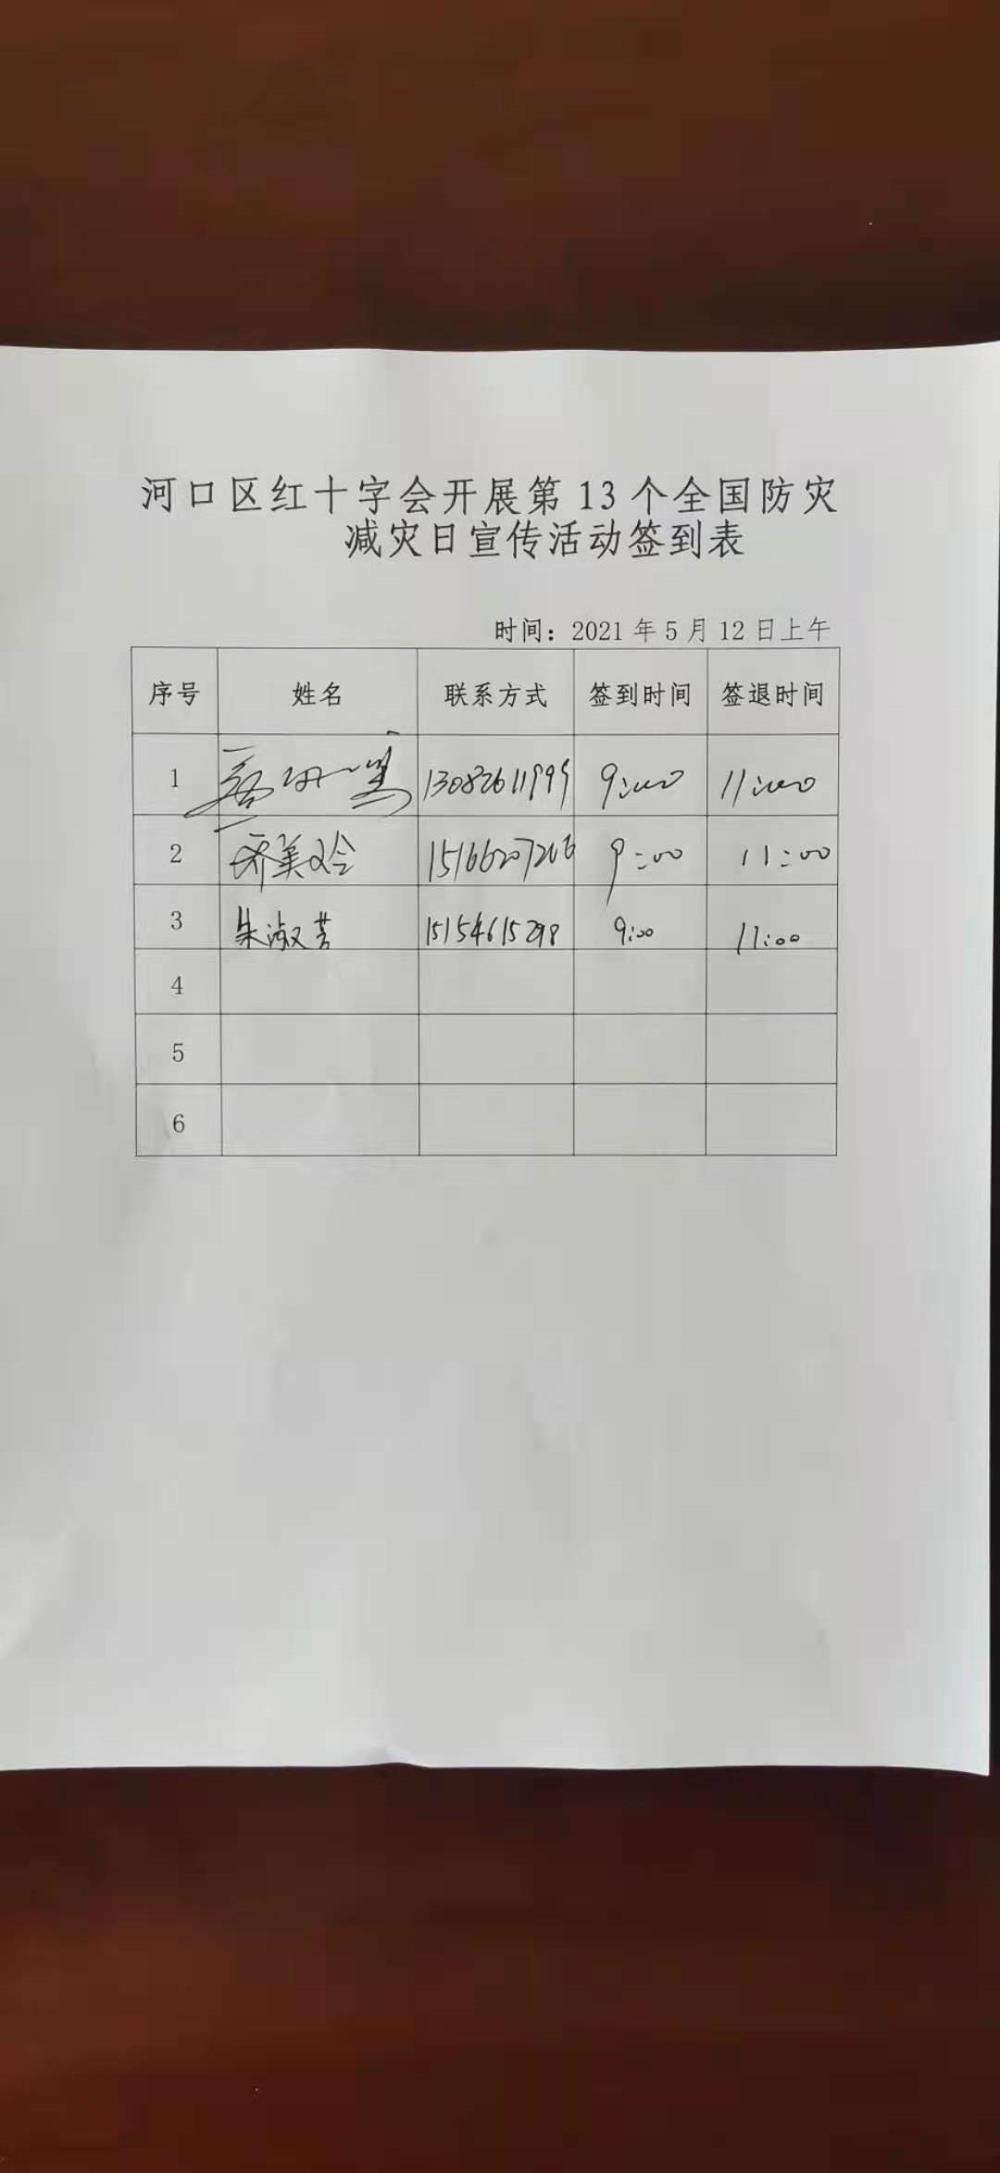 河口区红十字会开展第13个全国防灾
减灾日宣传活动签到表
时间：2021年5月12日上午
序号 姓名 联系方式 签到时间 签退时间
1 13082611999 9:00 11:00
2 15166207266 9:00 11:00
3 朱淑芳 15154615298 9:00 11:00
4
5
6